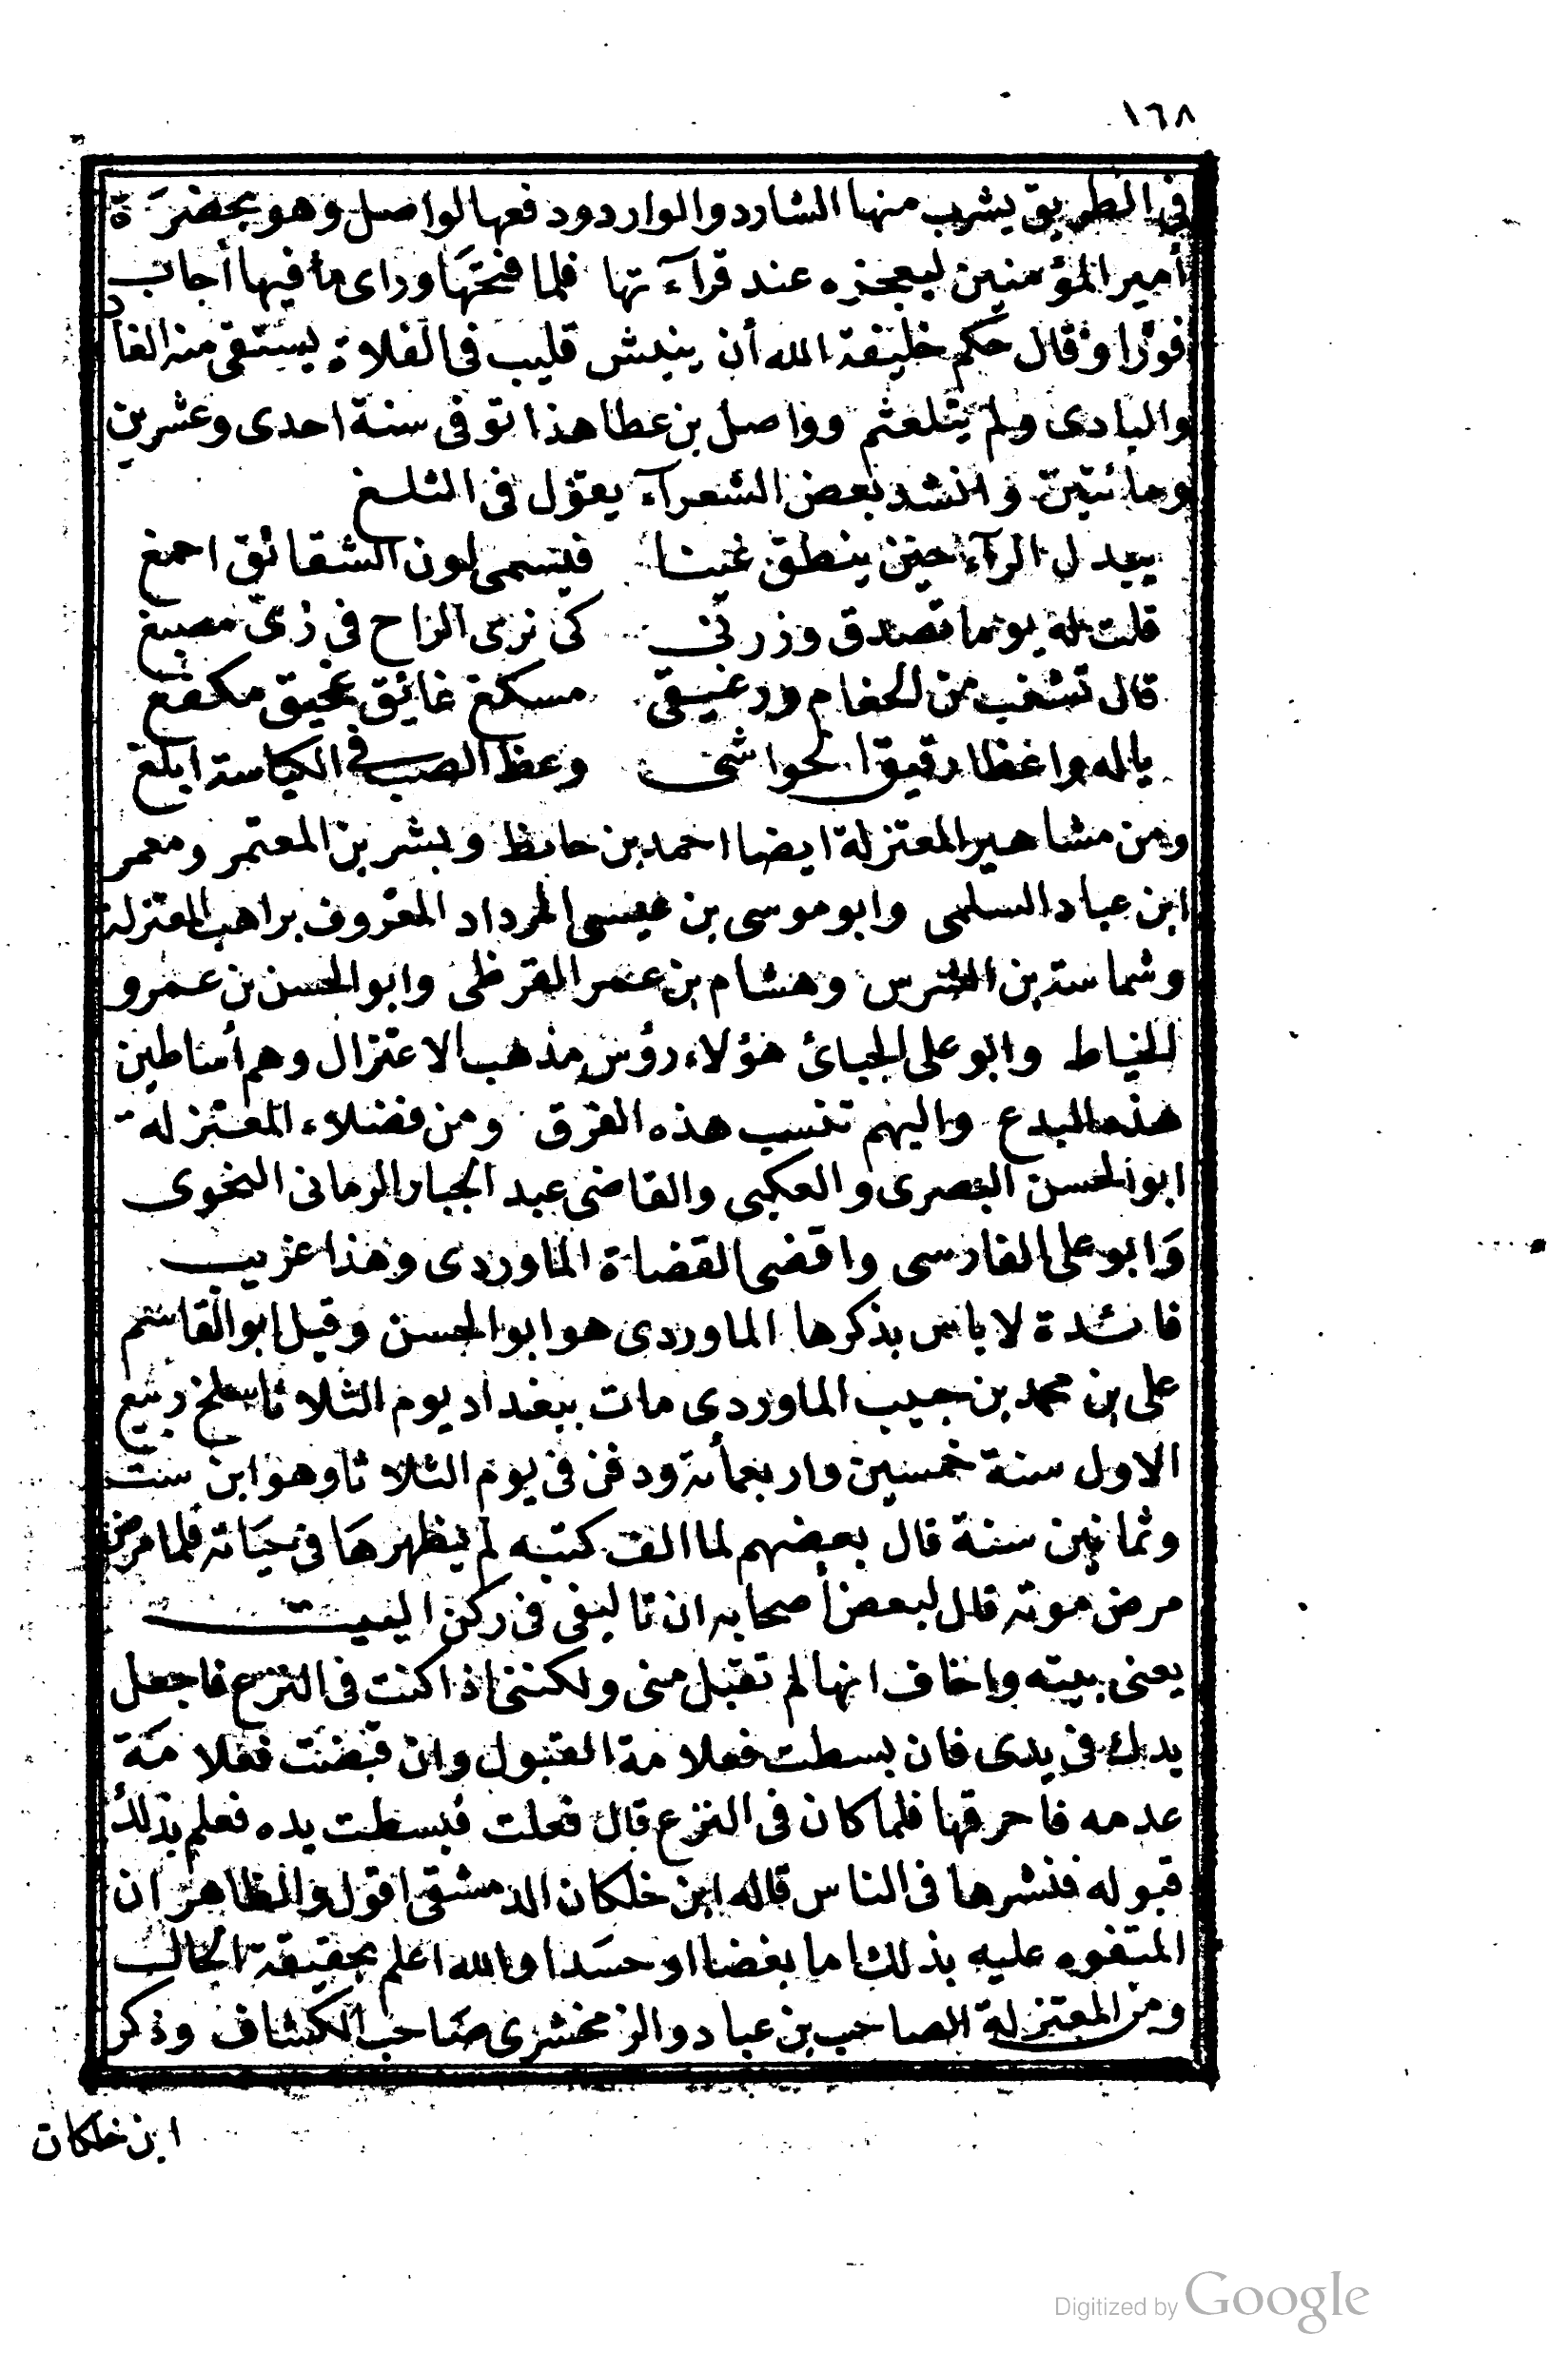 ١٦٨
فى الطريق يشرب منها الشارد والوارد ودفعها لواصل وهو بحضرَة
أمير المؤمنين ليعجزه عند قرآءتها فلما فتحَها وراى ما فيها أجاب
فورًا وقال حكم خليفة الله أن ينبش قليب فى الفلاة يستقى منه الغاد
والبادى ولم يتلعثم وواصل بن عطا هذا توفى سنة احدى وعشرين
ومائتين وانشد بعض الشعرآء يقول فى الثلغ
يبدل الرآء حين ينطق غينا فيسمى لون الشقائق احمغ
قلت له يوما تصدق وزرنى كى نرى الراح فى زى مصبغ
قال تشغب من الحغام ورغيقى مسكغ غايق عحيق مكفغ
ياله واغظا رقيق الحواشى وعظ الصب فى الكياسة ابلغ
ومن مشاهير المعتزلة ايضا احمد بن حابط وبشر بن المعتمر ومعمر
ابن عباد السلمى وابو موسى بن عيسى المرداد المعروف براهب المعتزلة
وشماسة بن اشرس وهشام بن عمر القرظى وابو الحسن بن عمرو
الخياط وابو على الجبائ هؤلاء رؤس مذهب الاعتزال وهم أساطين
هذه البدع واليهم تنسب هذه الفرق ومن فضلاء المعتزلة
ابو الحسن البصرى والعكبى والقاضى عبد الجبار الرمانى النحوى
وَابو على الفارسى واقضى القضاة الماوردى وهذا غريب
فائدة لا باس بذكرها الماوردى هو ابو الحسن وقيل ابو القاسم
على بن محمد بن حبيب الماوردى مات ببغداد يوم الثلاثا سلخ ربيع
الاول سنة خمسين واربعمأية ودفن فى يوم الثلاثا وهو ابن ست
وثمانين سنة قال بعضهم لما الف كتبه لم يظهرهَا فى حيَاته فلما مرض
مرض موته قال لبعض أصحابه ان تاليفى فى ركن البيت
يعنى بيته واخاف انها لم تقبل منى ولكننى اذا كنت فى النزع فاجعل
يدك فى يدى فان بسطت فعلامة القبول وان قبضت فعلامَة
عدمه فاحرقها فلما كان فى النزع قال فعلت فبسطت يده فعلم بذلك
قبوله فنشرها فى الناس قاله ابن خلكان الدمشقى اقول والظاهر ان
المتفوه عليه بذلك اما بغضا او حسَدا والله اعلم بحقيقة الحال
ومن المعتزلة الصاحب بن عباد والزمخشرى صَاحب الكشاف وذكر
ابن خلكان
Digitized by Google